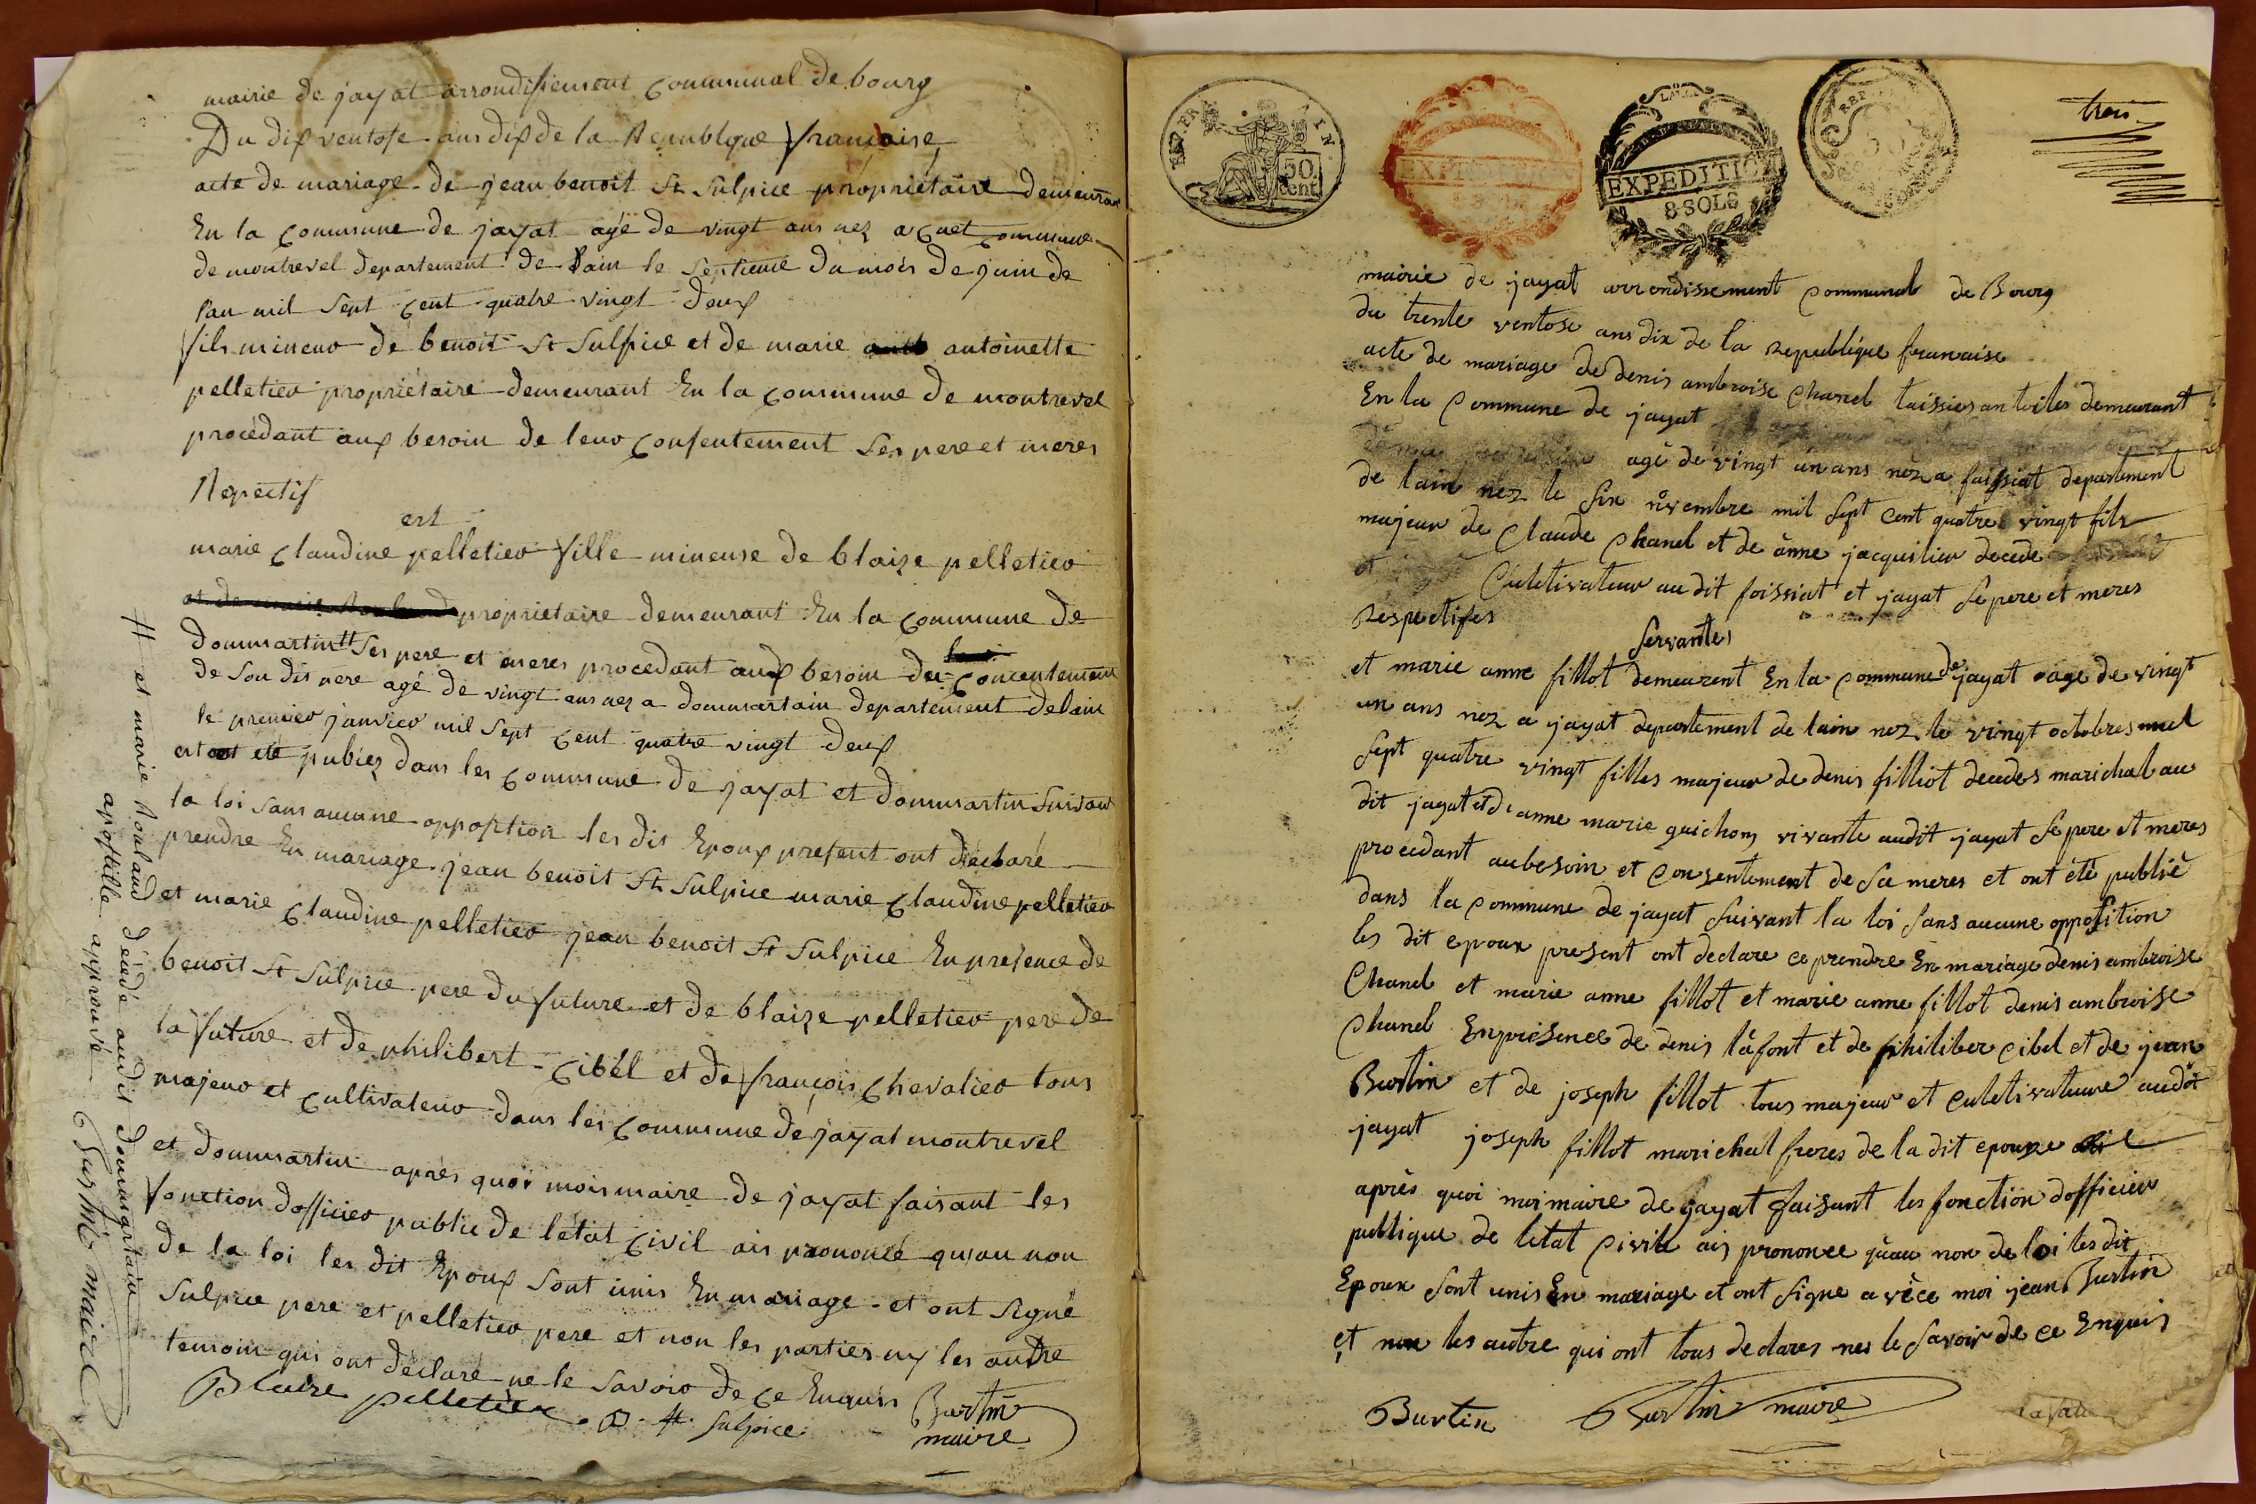 mairie de jayat arrondissement communal de bourg
Du dix ventose ans dix de la Republque française
acte de mariage de jean benoit St Sulpice propriétaire demeuran
En la commune de jayat agé de vingt ans nez a cuet commune
de montrevel departement de lain le septieme du mois de juin de
l'an mil sept cent quatre vingt deux
fils mineur de benoit St Sulpice et de marie antoinette
pelletier propriétaire demeurant En la commune de montrevel
procedant aux besoin de leur consentement ses pere et meres
Repectif
et
marie claudine pelletier fille mineuse de blaize pelletier
et de marie Roland propriétaire demeurant En la commune de
dommartin # ses pere et meres procedant aux besoin de concentement
de son dit pere agé de vingt ans nez a dommartain departement delain
le premier janvier mil sept cent quatre vingt deux
et ont eté pubiez dans les commune de jayat et dommartin suivant
la loi sans aucune opposition les dis Epoux present ont déclaré
prendre En mariage jean benoit St Sulpice marie claudine pelletier
et marie claudine pelletier jean benoit St Sulpice En presence de
benoit St Sulpice pere du future et de blaize pelletier pere de
la future et de philibert cibel et de françois chevalier tous
majeur et cultivateur dans les commune de jayat montrevel
et dommartin après quoi mois maire de jayat faisant les
fonction dofficier public de létat civil ais prononcé quau non
de la loi les dit Epoux sont unis En mariage et ont signé
Sulpice pere et pelletier pere et non les parties ny les autre
temoin qui ont déclaré ne le savoir de ce Enquis
Blaize pelletier B. St Sulpice Burtin
maire
# et marie Roland décédé audit dommartain
apostille approuvé
Burtin maire
REP. FRA
50 cent
EXPEDITION
8 SOLS
trois
mairie de jayat arrondissement communal de Bourg
du trente ventose ans dix de la republique francaise
acte de mariage de denis ambroise Chanel taissier an toiles demeurant
En la commune de jayat
agé de vingt un ans nez a foissiat departement
de lain nez le six novembre mil sept cent quatre vingt fils
majeur de Claude Chanel et de anne jacquilier decede
et Culetivateur au dit foissiat et jayat se pere et meres
Respectifes
servantes
et marie anne fillot demeurent En la commune de jayat age de vingt
un ans nez a jayat departement de lain nez le vingt octobres mil
sept quatre vingt filles majeur de denis filliot decedes marichal au
dit jayat et de anne marie guichon vivante audit jayat se pere et meres
procedant au besoin et consentement de sa meres et ont été publié
dans la commune de jayat suivant la loi sans aucune opposition
les dit epoux present ont declare ce prendre En mariage denis ambroise
Chanel et marie anne fillot et marie anne fillot denis ambroise
Chanel En presence de denis lafont et de philiber cibel et de jean
Burtin et de joseph fillot tous majeur et culetivateure audit
jayat joseph fillot marichal freres de la dit epouze
après quoi moi maire de jayat faisant les fonction dofficier
publique de letat civile ais prononce quau non de loi les dit
Epoux sont unis En mariage et ont signe avèce moi jean Burtin
et non les autre qui ont tous declares nes le savoir de ce Enquis
Burtin Burtin maire